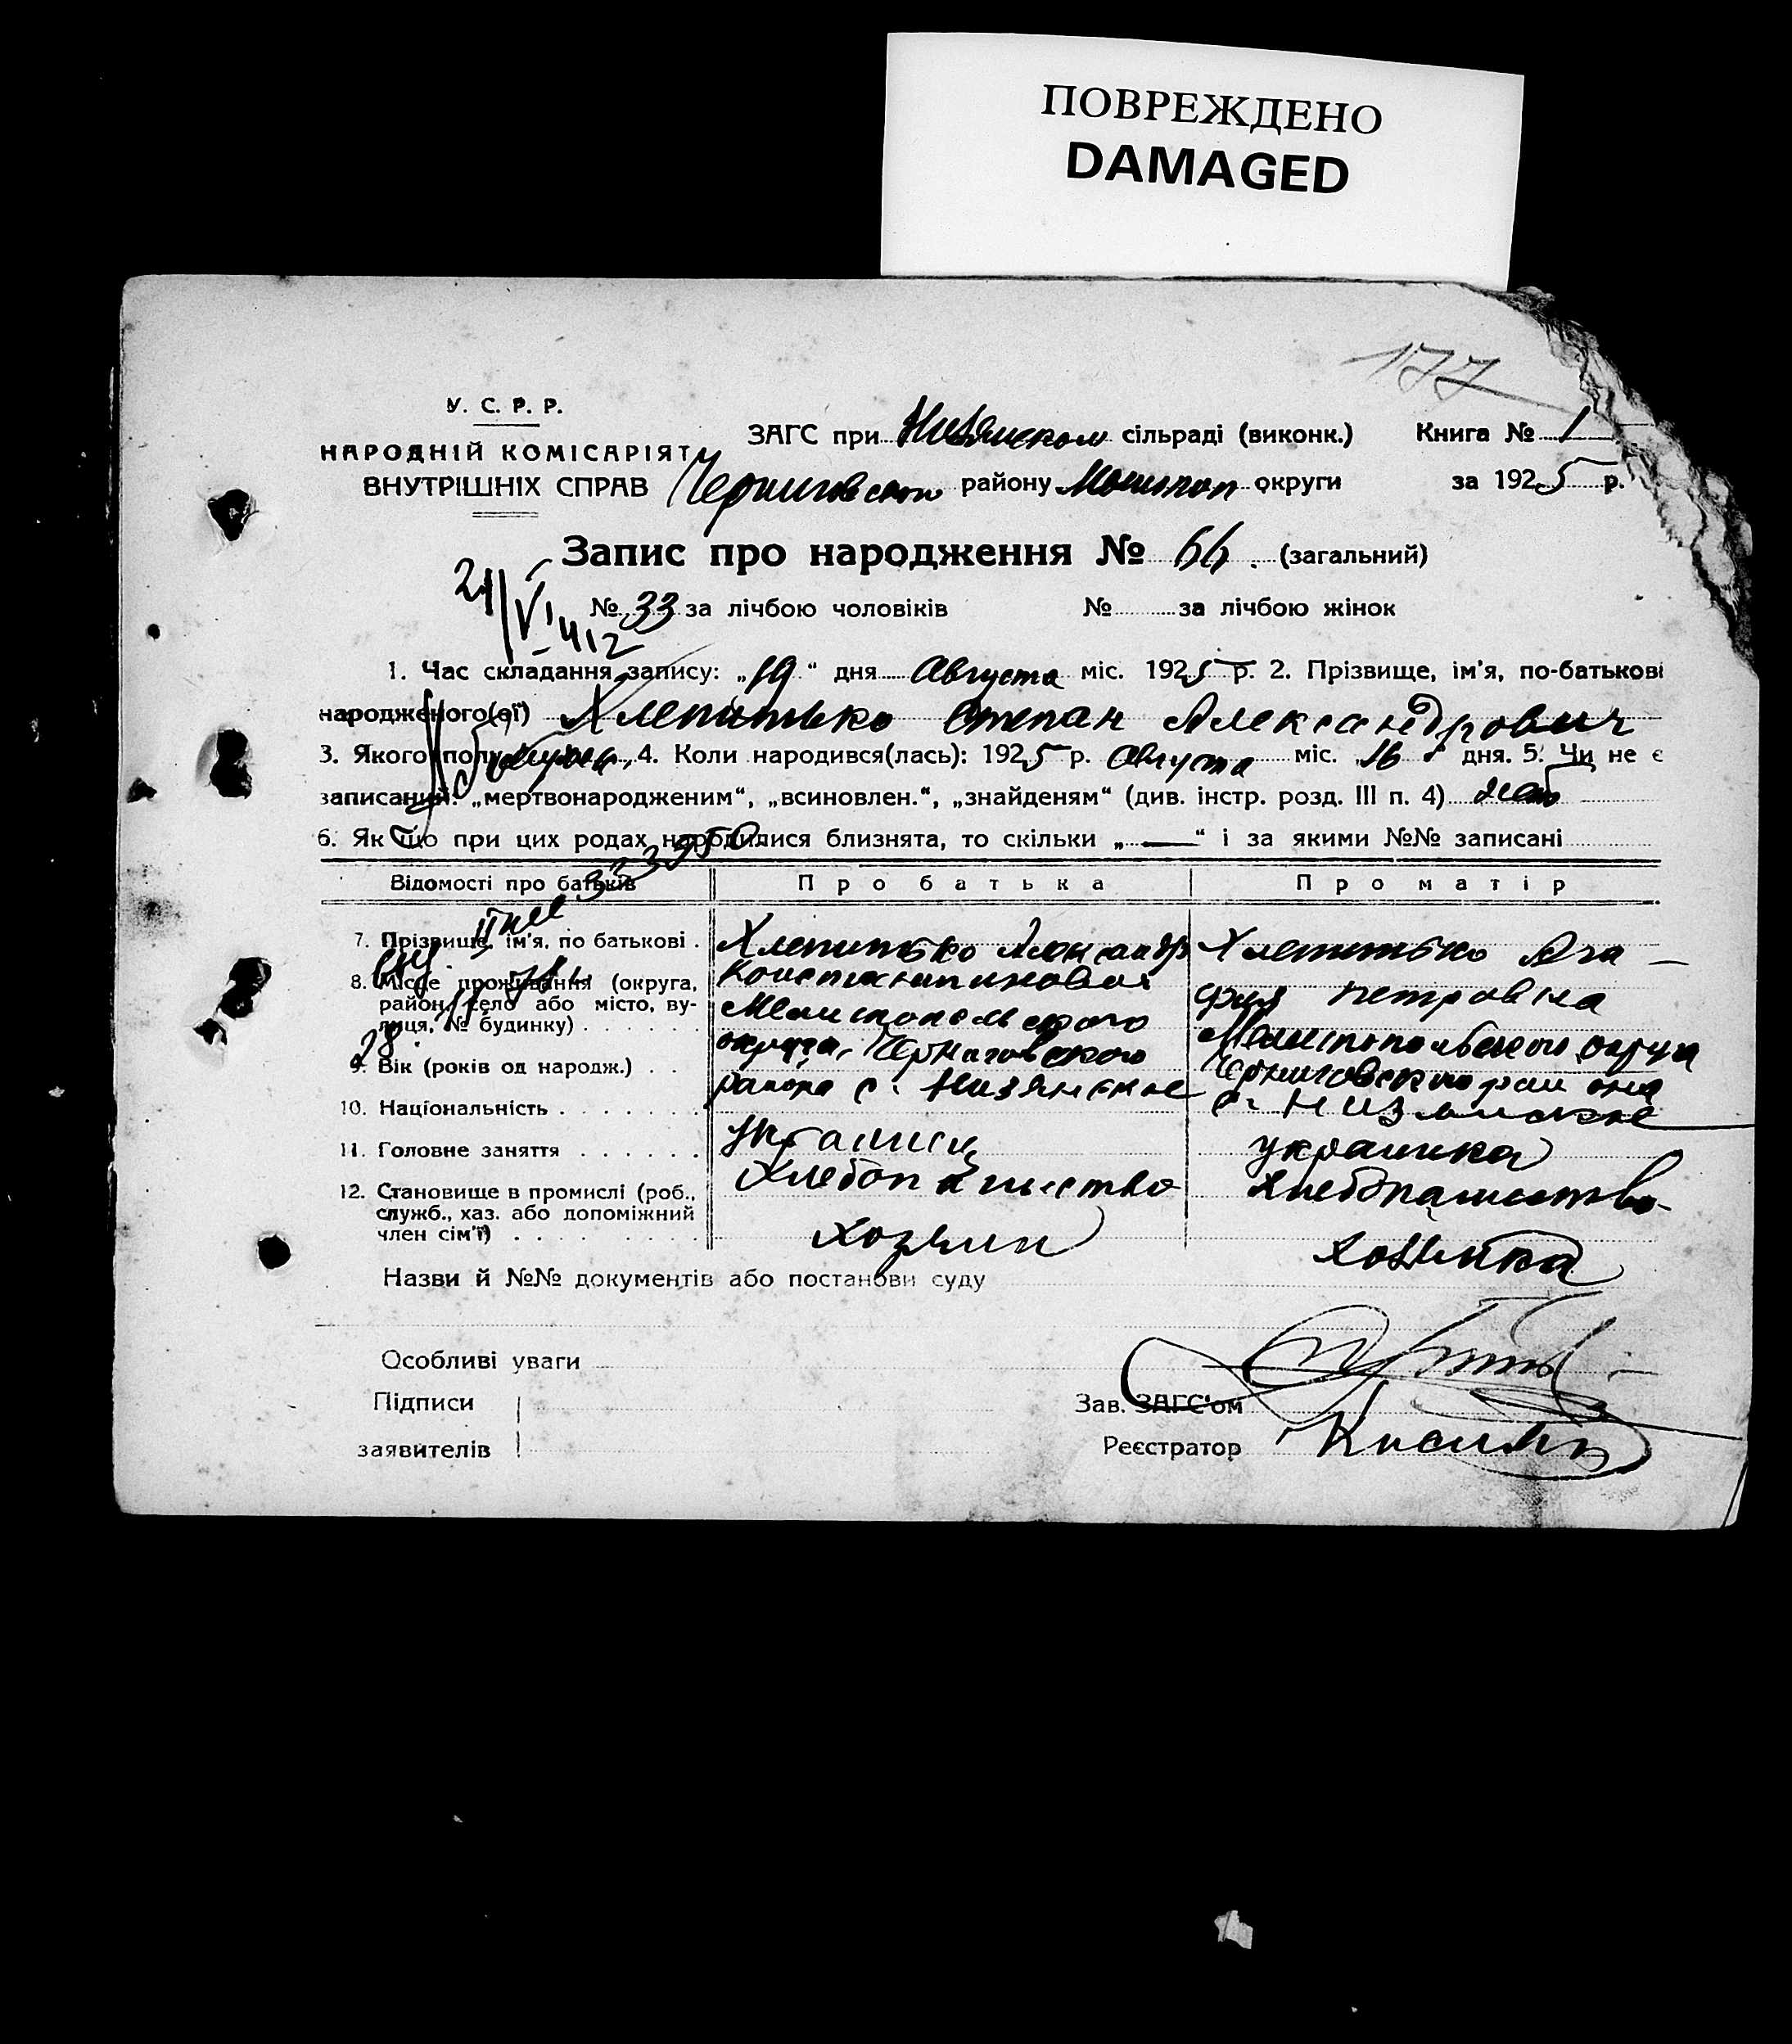 ПОВРЕЖДЕНО
DAMAGED
177
У. С. Р. Р.
НАРОДНІЙ КОМІСАРІЯТ
ВНУТРІШНІХ СПРАВ
ЗАГС при Низянском сільраді (виконк.) Книга № 1
Черниговском району Мелитоп округи за 1925 р.
Запис про народження № 66. (загальний)
21/VI 412
№ 33 за лічбою чоловіків № за лічбою жінок
1. Час складання запису: „19“ дня Августа міс. 1925 р. 2. Прізвище, ім'я, по-батькові
народженого(ої) Хлепитько Степан Александрович
3. Якого полу 4. Коли народився(лась): 1925 р. Августа міс. 16 дня. 5. Чи не є
записаний: „мертвонародженим“, „всиновлен.“, „знайденям“ (див. інстр. розд. III п. 4)
6. Як що при цих родах народилися близнята, то скільки „—“ і за якими №№ записані
Відомості про батьків Про батька Про матір
7. Прізвище, ім'я, по батькові . Хлепитько Александр Хлепитько Ага—
8. Місце проживання (округа, район, село або місто, вулиця, № будинку) . . . . . .
Константинович фия Петровна
Мелитопольского Мелитопольского округа
округа, Черниговского Черниговского района
района с. Низянское с. Низянское
9. Вік (років од народж.) . .
28.
10. Національність . . . . . . .
11. Головне заняття . . . . . . украинец украинка
12. Становище в промислі (роб., служб., хаз. або допоміжний член сім'ї) . . . . . . . .
Хлебопашество Хлебопашество
Хозяин Хозяйка
Назви й №№ документів або постанови суду
Особливі уваги
Підписи
заявителів
Зав. ЗАГС'ом
Реєстратор